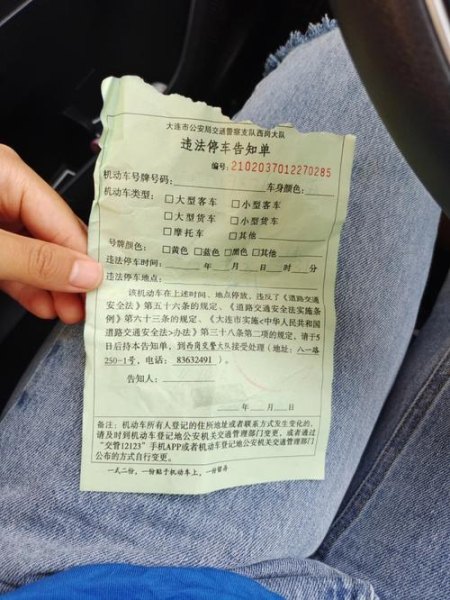 大连市公安局交通警察支队西岗大队
违法停车告知单
编号: 2102037012270285
机动车号牌号码: 车身颜色:
机动车类型: □大型客车 □小型客车
□大型货车 □小型货车
□摩托车 □其他
号牌颜色: □黄色 □蓝色 □黑色 □其他
违法停车时间: 年 月 日 时 分
违法停车地点:
该机动车在上述时间、地点停放，违反了《道路交通
安全法》第五十六条的规定、《道路交通安全法实施条
例》第六十三条的规定、《大连市实施<中华人民共和国
道路交通安全法>办法》第三十八条第二项的规定，请于5
日后持本告知单，到西岗交警大队接受处理（地址：八一路
250-1号，电话： 83632491 ）。
告知人：
年 月 日
备注：机动车所有人登记的住所地址或者联系方式发生变化的，
请及时到机动车登记地公安机关交通管理部门变更，或者通过
“交管12123”手机APP或者机动车登记地公安机关交通管理部门
公布的方式自行变更。
一式二份，一份贴于机动车上，一份留存